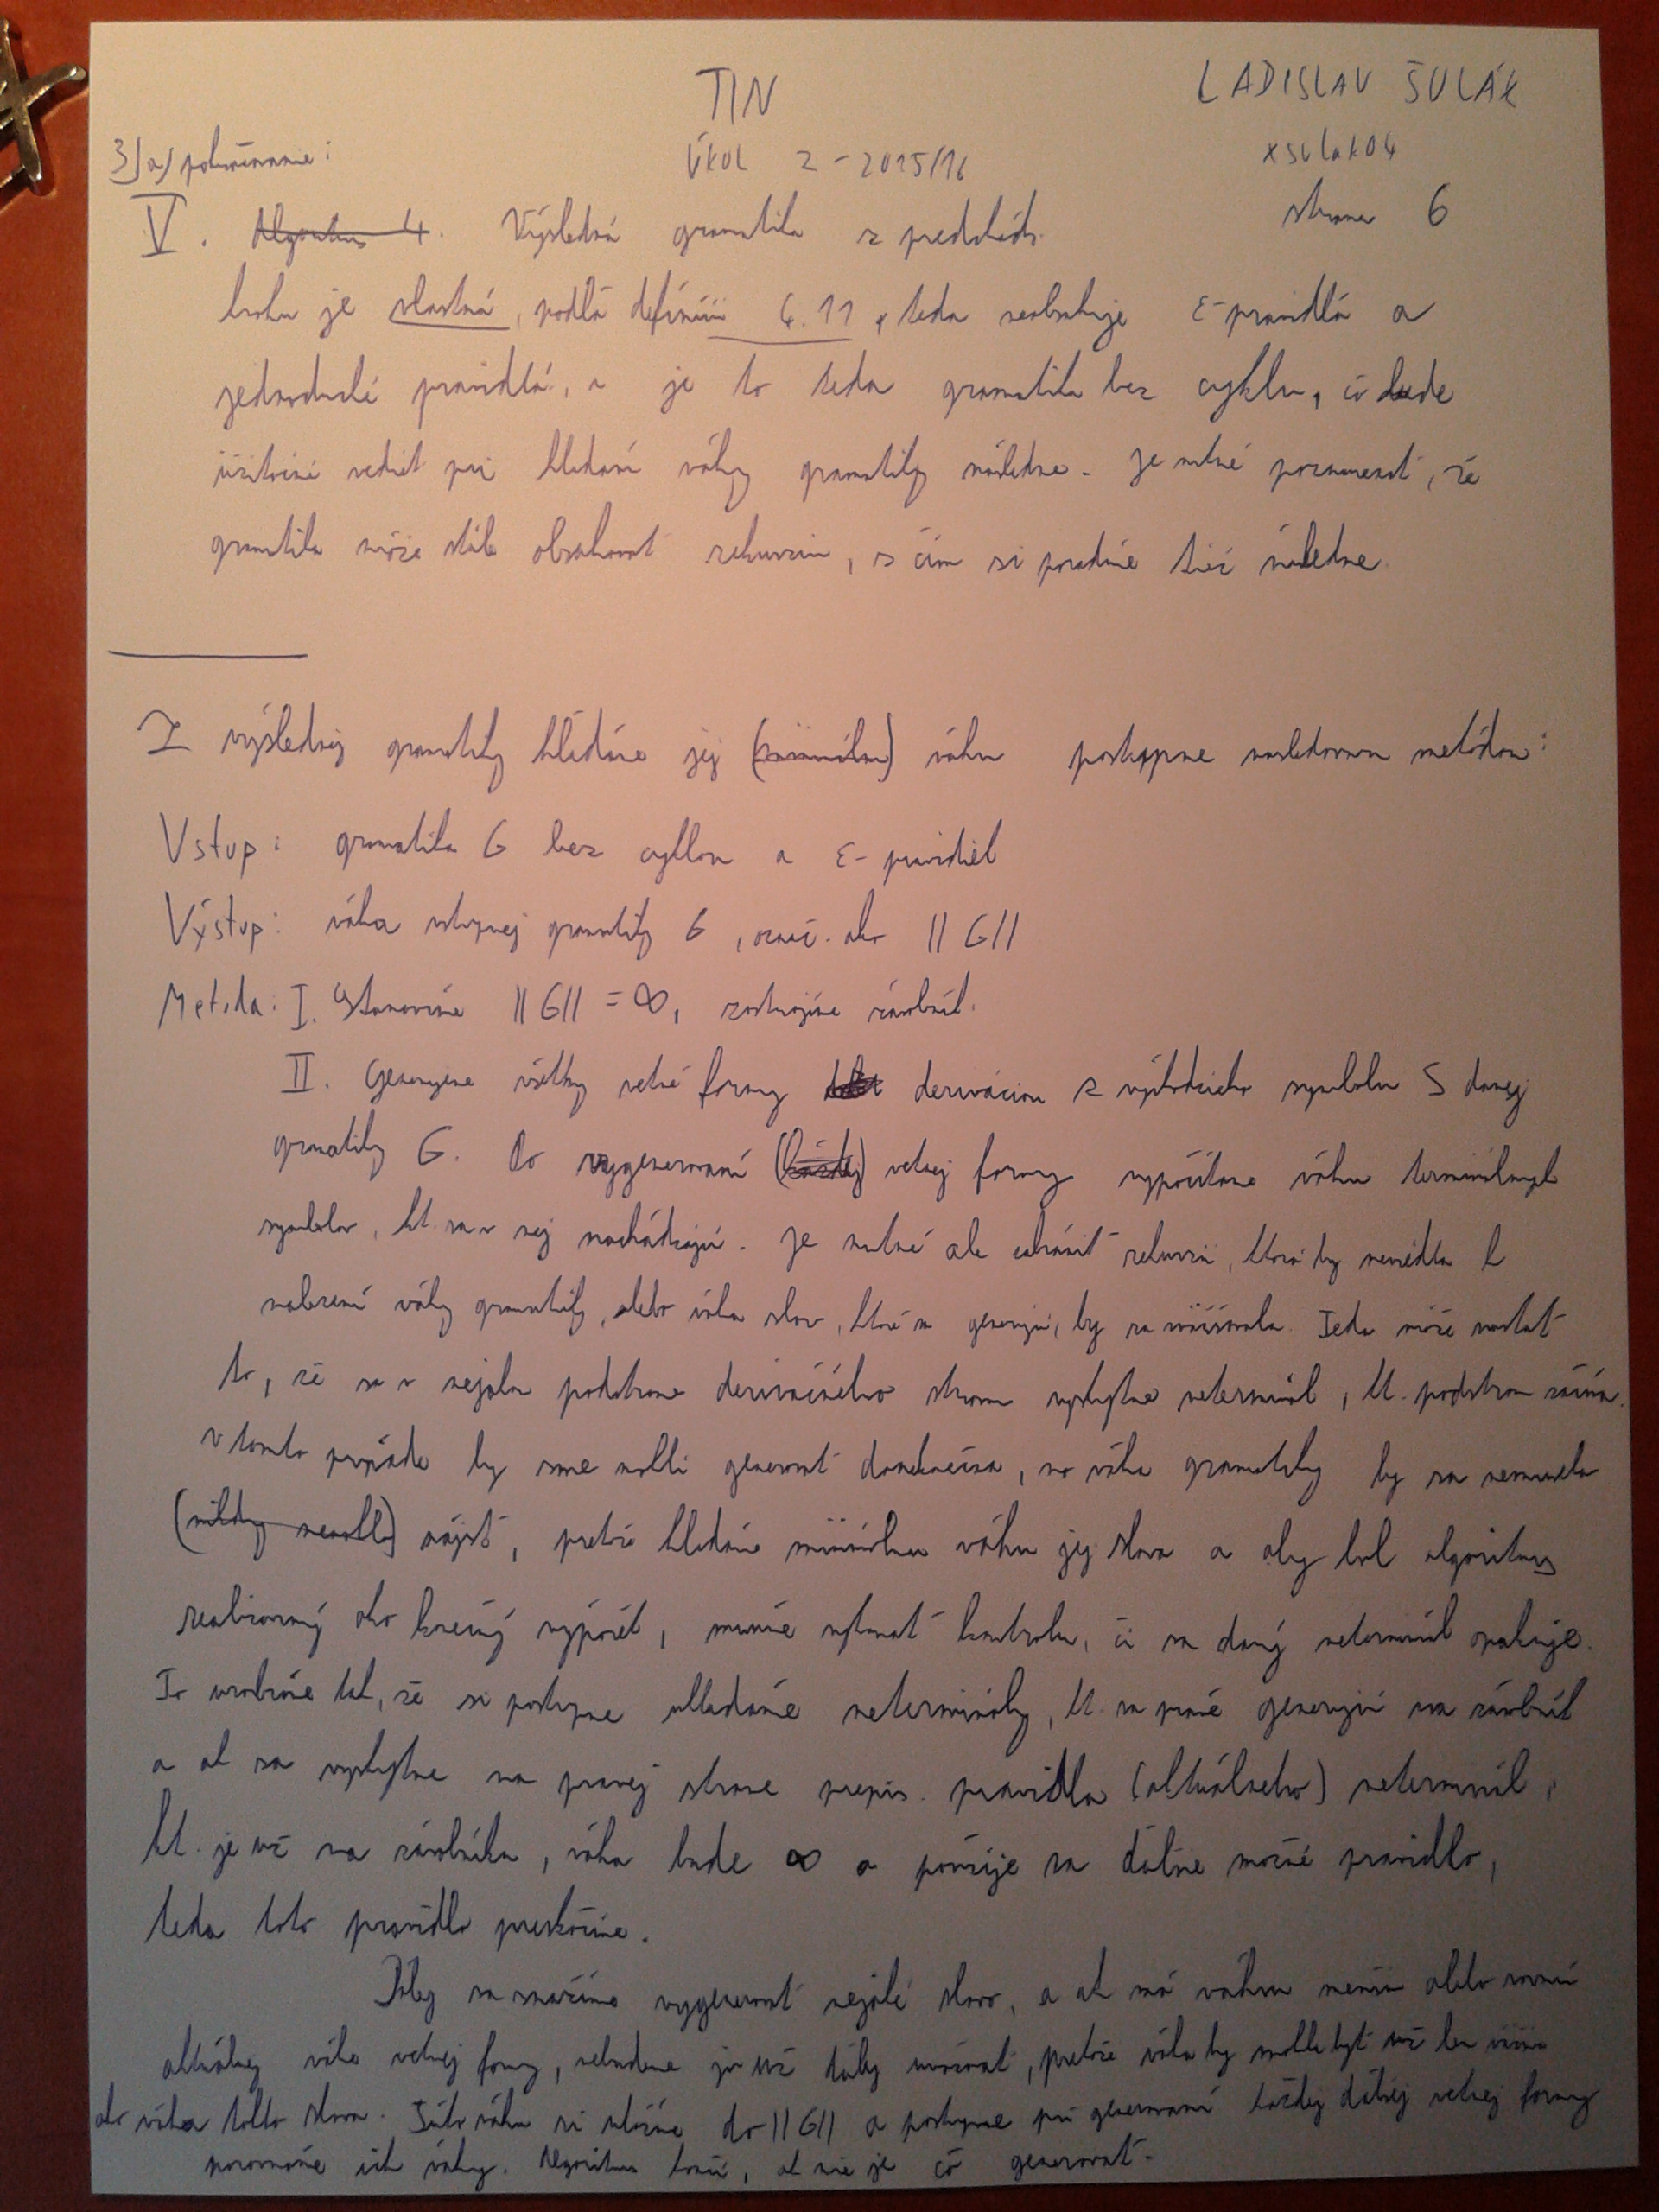 TIN
LADISLAV ŠULÁK
3) a) pokračovanie:
ÚKOL 2 - 2015/16
xsulak04
strana 6
V. Algoritmus 4. Výsledná gramatika z predchádz.
kroku je vlastná, podľa definície 4.11, teda neobsahuje ε-pravidlá a
jednoduché pravidlá, a je to teda gramatika bez cyklu, čo bude
užitočné vedieť pri hľadaní váhy gramatiky následne. Je nutné poznamenať, že
gramatika môže stále obsahovať rekurziu, s čím si poradíme tiež následne.
Z výslednej gramatiky hľadáme jej (minimálnu) váhu postupne nasledovnou metódou:
Vstup: gramatika G bez cyklov a ε-pravidiel
Výstup: váha vstupnej gramatiky G, označ. ako ||G||
Metóda: I. Stanovíme ||G|| = ∞, zostrojíme zásobník.
II. Generujeme všetky vetné formy deriváciou z východzieho symbolu S danej
gramatiky G. Po vygenerovaní (každej) vetnej formy vypočítame váhu terminálnych
symbolov, kt. sa v nej nachádzajú. Je nutné ale zabrániť rekurzii, ktorá by neviedla k
nalezení váhy gramatiky, alebo váha slov, ktoré sa generujú, by sa zväčšovala. Teda môže nastať
to, že sa v nejakom podstrome derivačného stromu vyskytne neterminál, kt. podstrom začína.
V tomto prípade by sme mohli generovať donekonečna, no váha gramatiky by sa nemusela
(nikdy nemohla) nájsť, pretože hľadáme minimálnu váhu jej slova a aby bol algoritmus
realizovaný ako konečný výpočet, musíme vykonať kontrolu, či sa daný neterminál opakuje.
To urobíme tak, že si postupne ukladáme neterminály, kt. sa práve generujú na zásobník
a ak sa vyskytne na pravej strane prepis. pravidla (aktuálneho) neterminál,
kt. je už na zásobníku, váha bude ∞ a použije sa ďalšie možné pravidlo,
teda toto pravidlo preskočíme.
Ďalej sa snažíme vygenerovať nejaké slovo, a ak má váhu menšiu alebo rovnú
aktuálnej váhe vetnej formy, nebudeme ju už ďalej uvažovať, pretože váha by mohla byť už len väčšia
ako váha tohto slova. Túto váhu si uložíme do ||G|| a postupne pri generovaní každej ďalšej vetnej formy
porovnáme ich váhy. Algoritmus končí, ak nie je čo generovať.